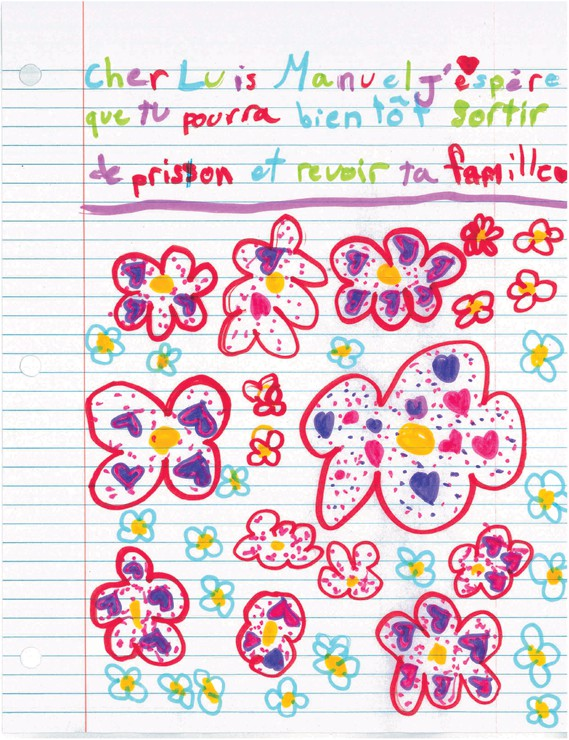 Cher Luis Manuel j'éspère
que tu pourra bientôt sortir
de prisson et revoir ta famille